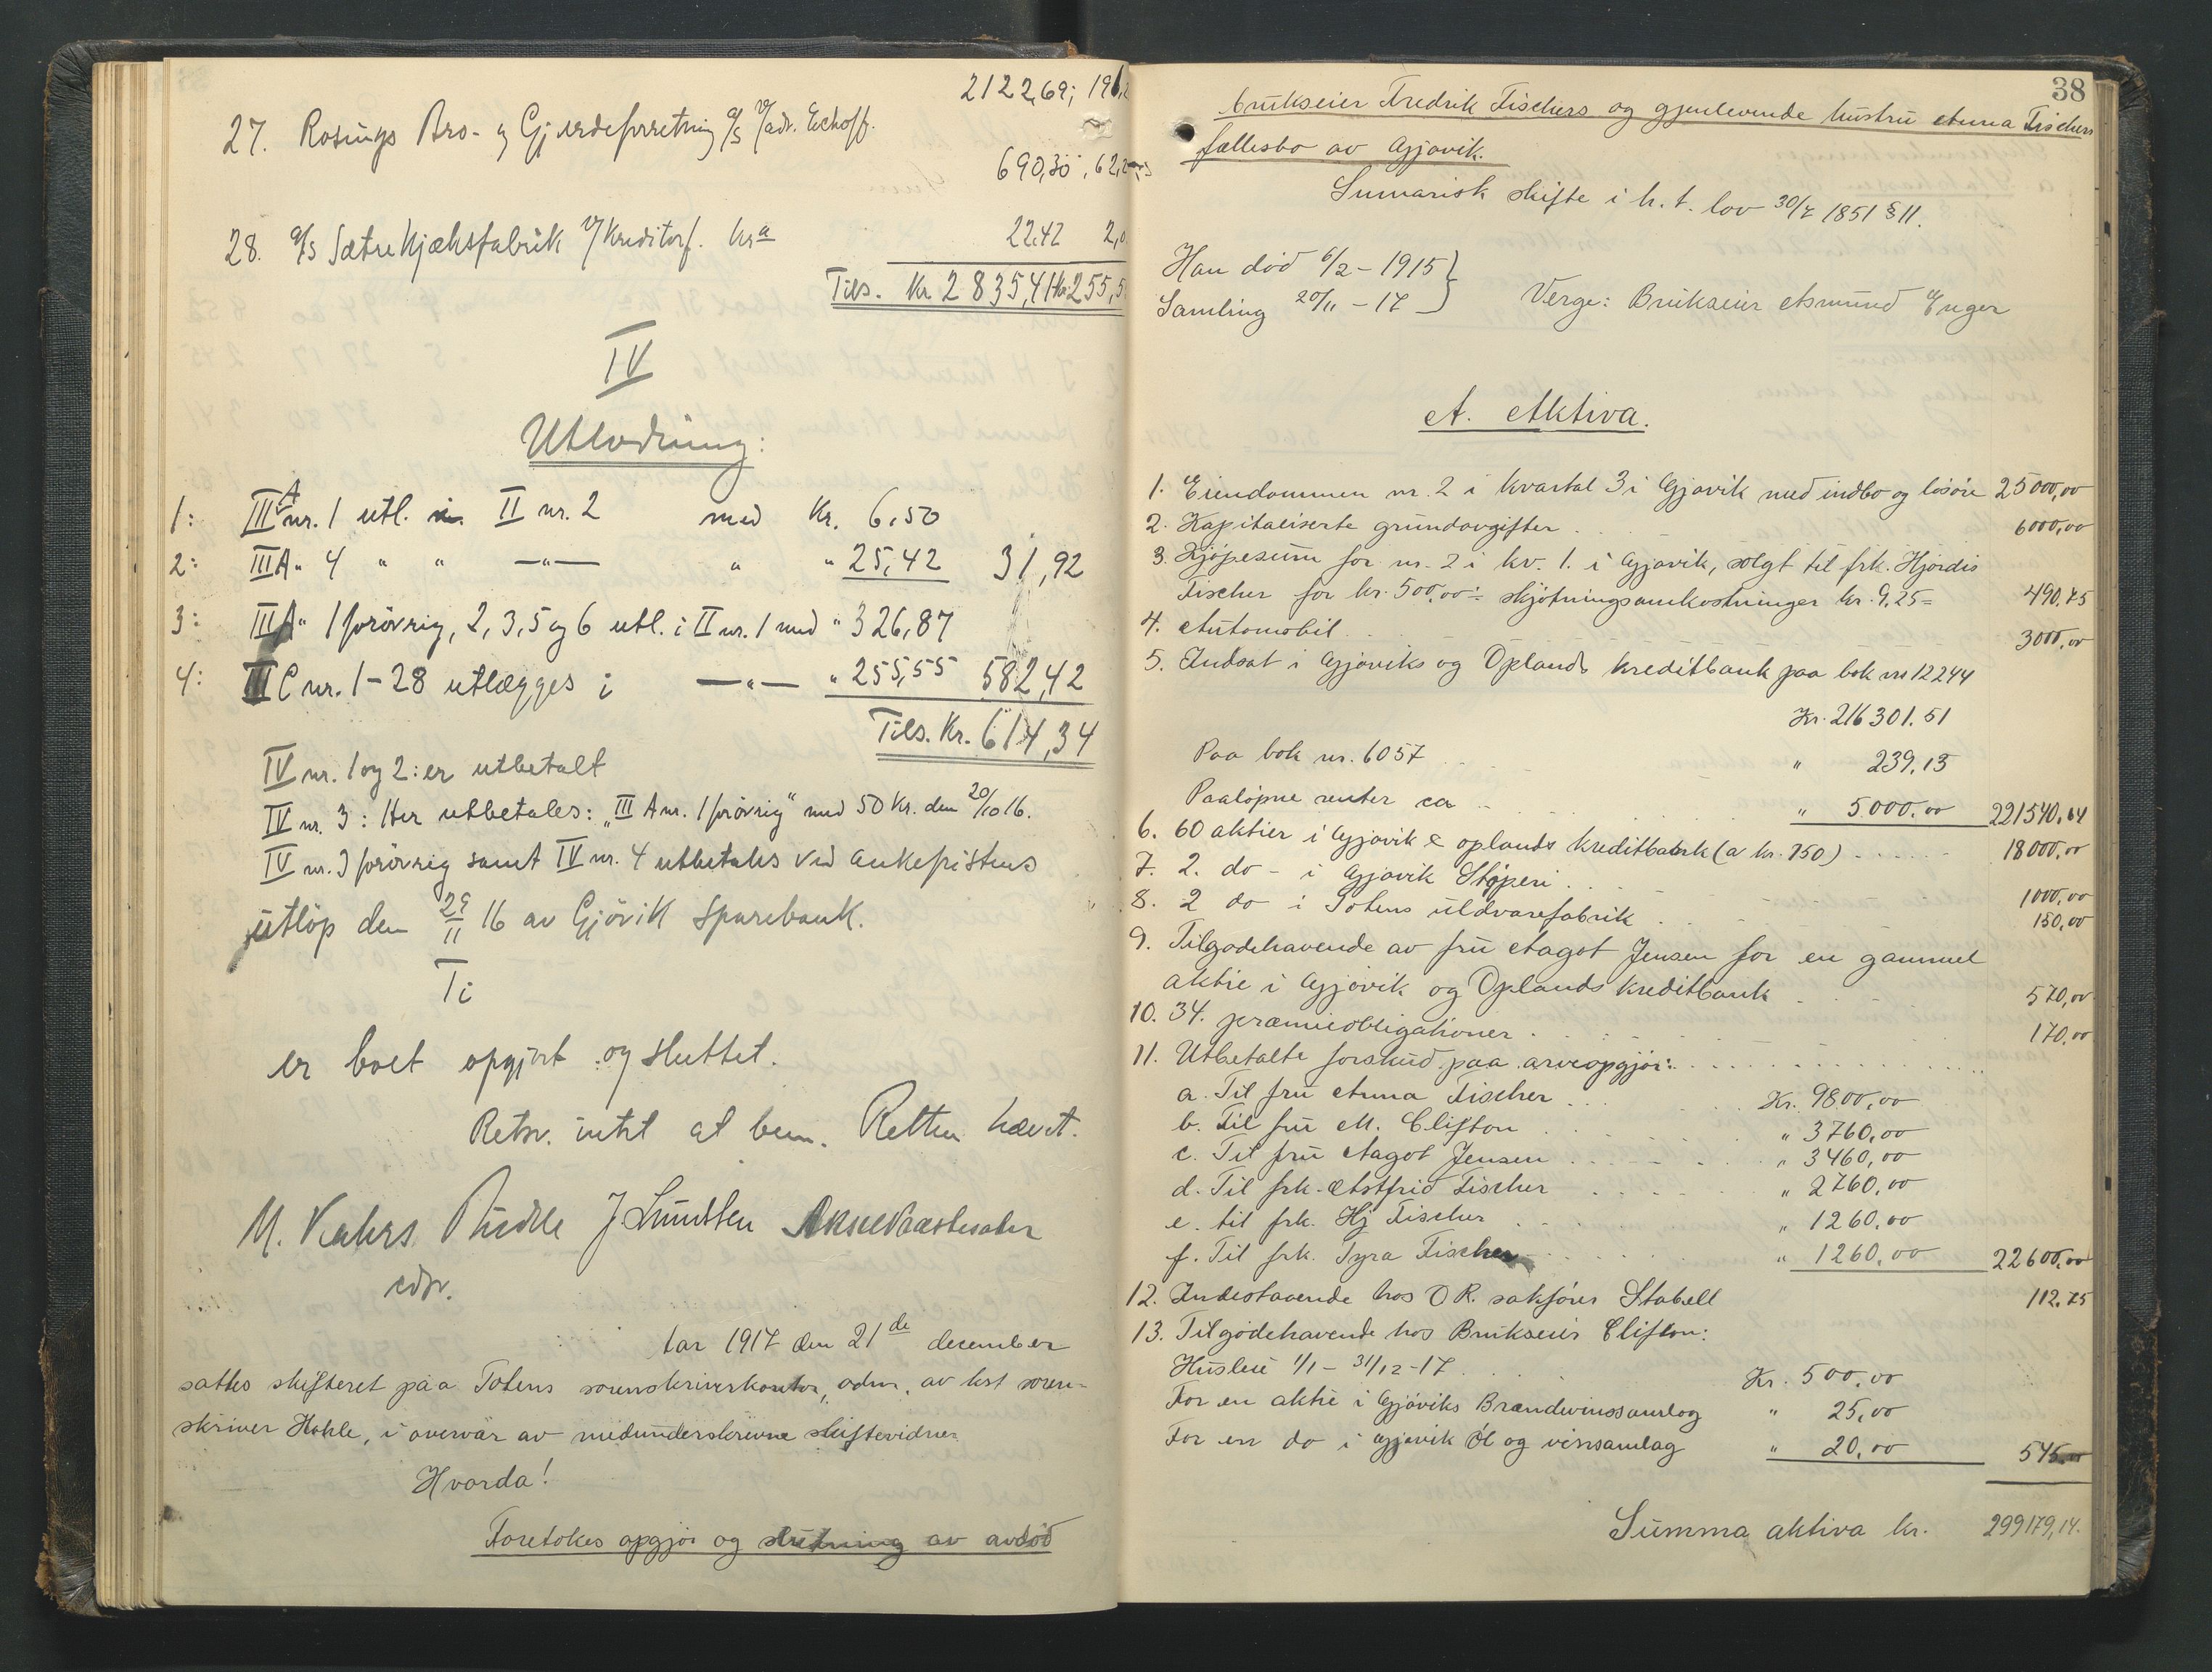 2122,69; 191,
27. Rosings Bro- og Gjærdeforretning a/s v/adv. Eckhoff.
690,30 , 62,
28. a/s Sætre Kjæksfabrik v/Kreditorf. Kra 22.42 2,0
Tils. Kr 2835,41 Kr 255,5
IV
Utlodning:
1: III A nr. 1 utl. i II nr. 2 med Kr. 6,50
2: III A „ 4 „ „ —„— „ „ 25,42 31,92
3: III A „ 1 forøvrig, 2, 3, 5 og 6 utl. i II nr. 1 med „ 326,87
4: III C nr. 1-28 utlægges i —„— „ 255,55 582,42
Tils. Kr. 614,34
IV nr. 1 og 2: er utbetalt
IV nr. 3: Her utbetales: „III A nr. 1 forøvrig" med 50 Kr. den 20/10 16.
IV nr. 3 forøvrig samt IV nr. 4 utbetales ved ankefristens
utløp den 29/11 16 av Gjøvik Sparebank.
Ti
er boet opgjort og sluttet.
Retsv. intet at bem. Retten hævet.
M. Kahrs J. Smidtsen
edsv.
Aar 1917 den 21de december
sattes skifteret paa Totens sorenskriverkontor, adm. av kst soren-
skriver Hohle, i overvær av medunderskrevne skiftevidner
Hvorda!
Foretokes opgjør og slutning av avdød
38
brukseier Fredrik Fischers og gjenlevende hustru Anna Fischers
fællesbo av Gjøvik.
Sumarisk skifte i h. t. lov 30/7 1851 § 11.
Han død 6/2 - 1915
Samling 20/11 - 17 } Verge: Brukseier Asmund Enger
A. Aktiva.
1. Eiendommen nr. 2 i kvartal 3 i Gjøvik med indbo og løsøre 25000,00
2. Kapitaliserte grundavgifter 6000,00
3. Kjøpesum for nr. 2 i kv. 1. i Gjøvik, solgt til frk. Hjørdis
Fischer for kr. 500,00 ÷ skjøtningsomkostninger kr. 9,25 = 490,75
4. Automobil 3000,00
5. Indsat i Gjøviks og Oplands kreditbank paa bok nr 12244
Kr. 216301.51
Paa bok nr. 6057 „ 239.13
Paaløpne renter ca „ 5000.00 221540,64
6. 60 aktier i Gjøvik & oplands kreditbank (a kr. 750) 18000,00
7. 2. do - i Gjøvik Støperi 1000,00
8. 2 do i Totens uldvarefabrik 150,00
9. Tilgodehavende av fru Aagot Jensen for en gammel
aktie i Gjøvik og Oplands kreditbank 570,00
10. 34. præmieobligationer 170,00
11. Utbetalte forskud paa arveopgjør:
a. Til fru Anna Fischer Kr. 9800,00
b. Til fru M. Clifton „ 3760,00
c. Til fru Aagot Jensen „ 3460,00
d. Til frk. Astfrid Fischer „ 2760,00
e. til frk. Hj Fischer „ 1260,00
f. Til frk. Tyra Fischer „ 1260,00 22600,00
12. Indestaaende hos O.R. sakfører Stabell 112.75
13. Tilgodehavende hos Brukseier Clifton:
Husleie 1/1 - 31/12 - 17 Kr. 500,00
For en aktie i Gjøviks Brændevinssamlag „ 25,00
For en do i Gjøvik Øl og vinsamlag „ 20,00 545,00
Summa aktiva kr. 299179,14.